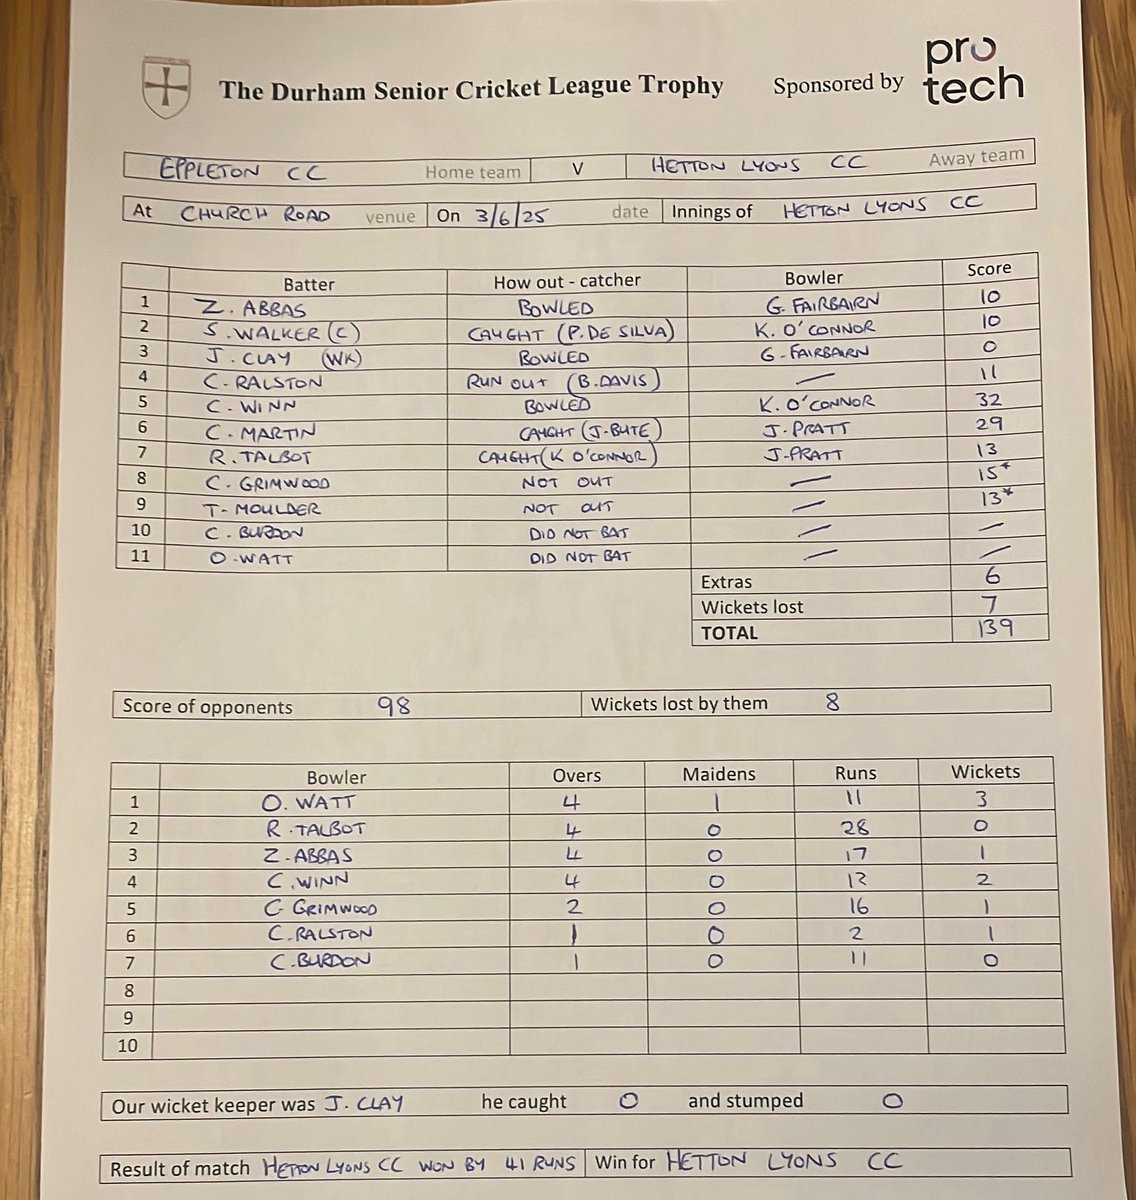 The Durham Senior Cricket League Trophy Sponsored by pro tech
EPPLETON CC Home team V HETTON LYONS CC Away team
At CHURCH ROAD venue On 3/6/25 date Innings of HETTON LYONS CC
Batter How out - catcher Bowler Score
1 Z. ABBAS BOWLED G. FAIRBAIRN 10
2 S. WALKER (C) CAUGHT (P. DE SILVA) K. O'CONNOR 10
3 J. CLAY (WK) BOWLED G. FAIRBAIRN 0
4 C. RALSTON RUN OUT (B. DAVIS) — 11
5 C. WINN BOWLED K. O'CONNOR 32
6 C. MARTIN CAUGHT (J. BUTE) J. PRATT 29
7 R. TALBOT CAUGHT (K O'CONNOR) J. PRATT 13
8 C. GRIMWOOD NOT OUT — 15*
9 T. MOULDER NOT OUT — 13*
10 C. BURDON DID NOT BAT — —
11 O. WATT DID NOT BAT — —
Extras 6
Wickets lost 7
TOTAL 139
Score of opponents 98 Wickets lost by them 8
Bowler Overs Maidens Runs Wickets
1 O. WATT 4 1 11 3
2 R. TALBOT 4 0 28 0
3 Z. ABBAS 4 0 17 1
4 C. WINN 4 0 12 2
5 C GRIMWOOD 2 0 16 1
6 C. RALSTON 1 0 2 1
7 C. BURDON 1 0 11 0
8
9
10
Our wicket keeper was J. CLAY he caught 0 and stumped 0
Result of match HETTON LYONS CC WON BY 41 RUNS Win for HETTON LYONS CC